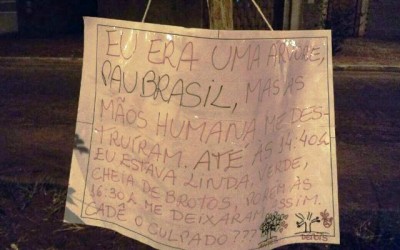 EU ERA UMA ÁRVORE,
PAU BRASIL, MAS AS
MÃOS HUMANA ME DES-
TRUIRAM. ATÉ ÀS 14:40h
EU ESTAVA LINDA, VERDE,
CHEIA DE BROTOS, PORÉM ÀS
16:30h ME DEIXARAM ASSIM.
CADÊ O CULPADO ???
DEPOIS